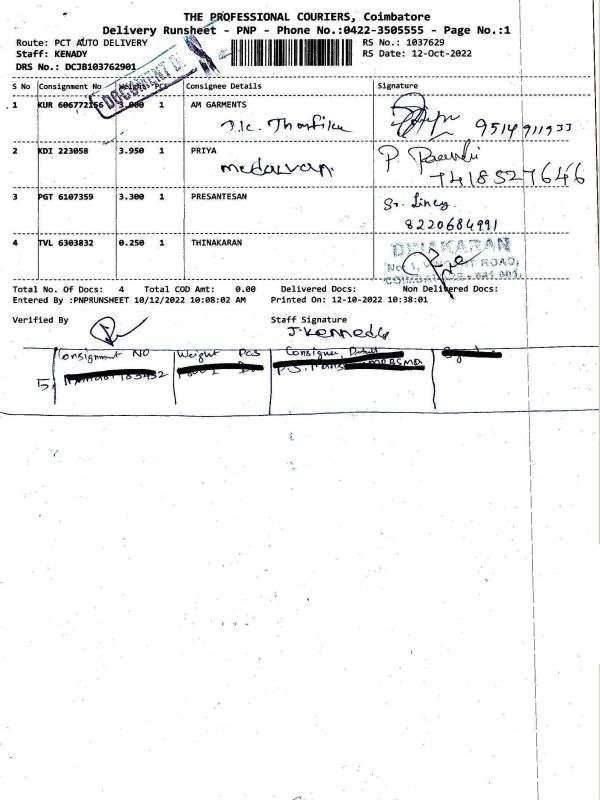 THE PROFESSIONAL COURIERS, Coimbatore
Delivery Runsheet - PNP - Phone No.:0422-3505555 - Page No.:1
Route: PCT AUTO DELIVERY
RS No.: 1037629
Staff: KENADY
RS Date: 12-Oct-2022
DRS No.: DCJB103762901
DOCUMENT
S No Consignment No Weight PCS Consignee Details Signature
1 KUR 606772156 3.000 1 AM GARMENTS
9514911933
2 KDI 223058 3.950 1 PRIYA
P
7418527646
3 PGT 6107359 3.300 1 PRESANTESAN
Sr. Lincy
8220684991
4 TVL 6303832 0.250 1 THINAKARAN
DINAKARAN
ROAD,
Total No. Of Docs: 4 Total COD Amt: 0.00 Delivered Docs: Non Delivered Docs:
Entered By :PNPRUNSHEET 10/12/2022 10:08:02 AM Printed On: 12-10-2022 10:38:01
Verified By Staff Signature
J. Kennedy
Consignment NO Weight Pcs
5